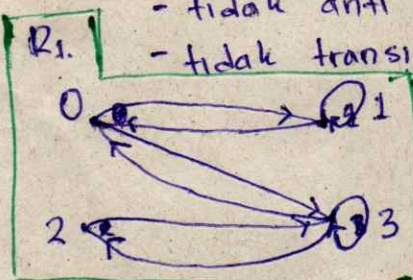 - tidak anti
R1.
- tidak transi
0
1
2
3